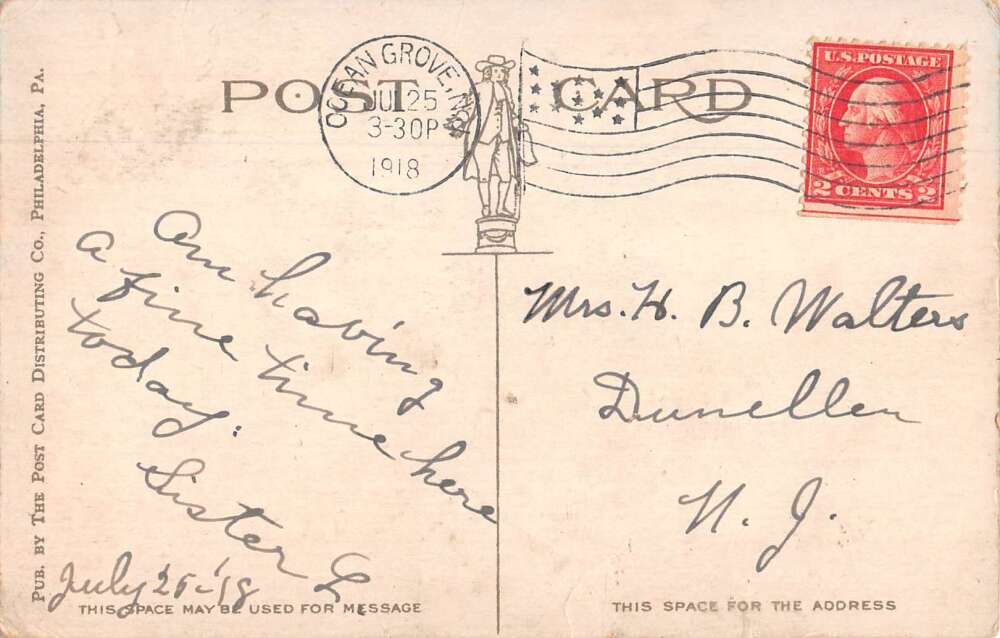 POST CARD
OCEAN GROVE, N.J.
JUL 25
3-30P
1918
U.S. POSTAGE
2 CENTS 2
PUB. BY THE POST CARD DISTRIBUTING CO., PHILADELPHIA, PA.
Am having
a fine time here
today.
Sister L.
July 25-'18
THIS SPACE MAY BE USED FOR MESSAGE
Mrs. H. B. Walters
Dunellen
N. J.
THIS SPACE FOR THE ADDRESS